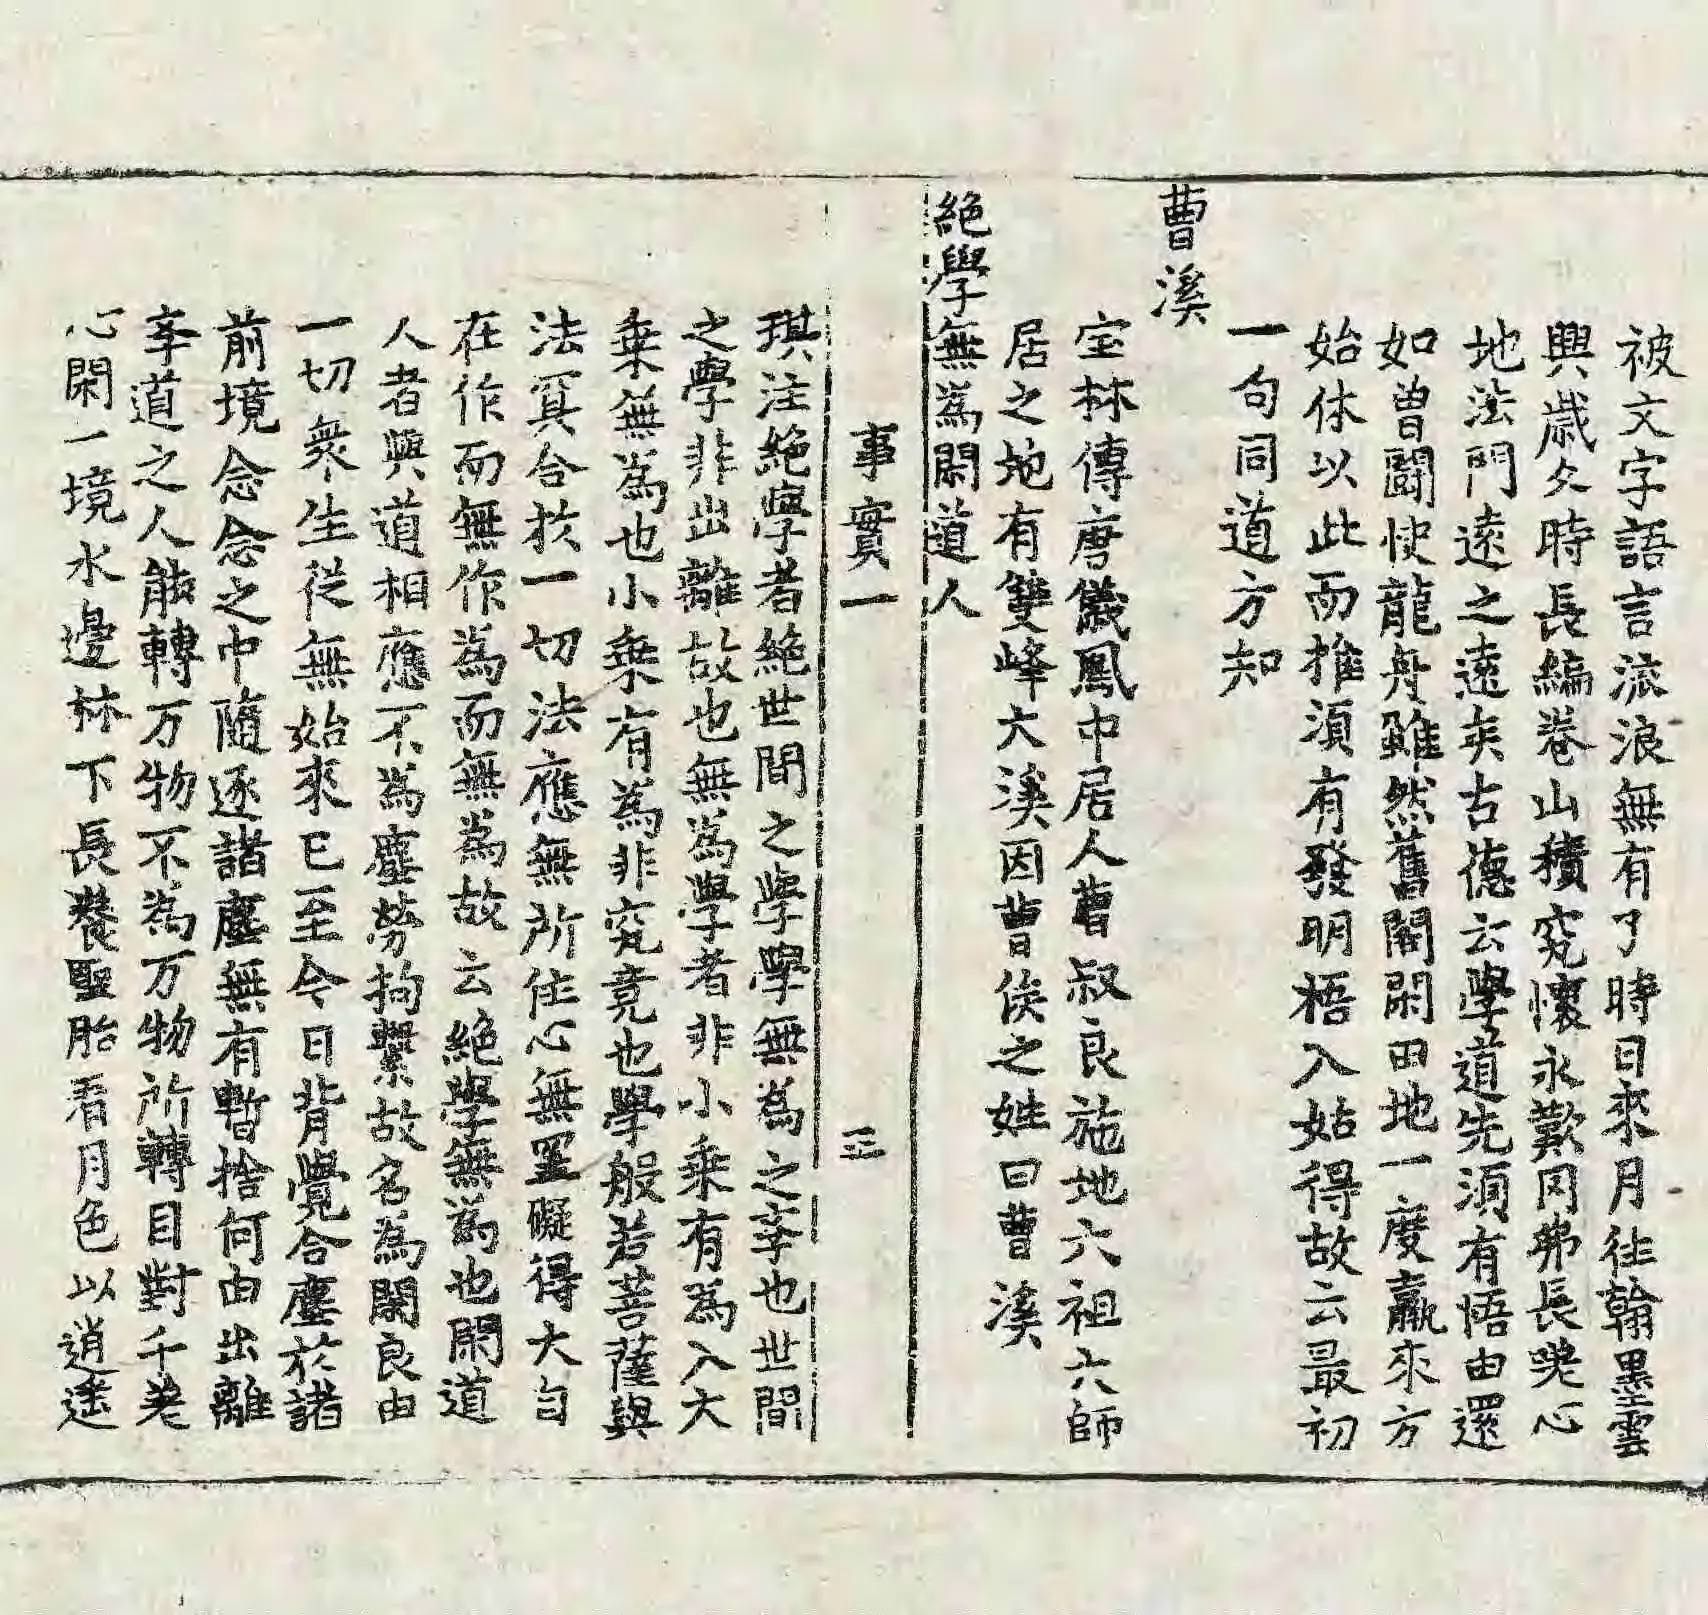 被文字語言流浪無有了時日來月往翰墨雲
興歲久時長編卷山積究懷永歎罔弗長嘆心
地法門遠之遠矣古德云學道先須有悟由還
如曾鬪快龍舟雖然舊閣閑田地一度贏來方
始休以此而推須有發明悟入始得故云最初
一句同道方知
曹溪
宝林傳唐儀鳳中居人曹叔良施地六祖六師
居之地有雙峰大溪因曹侯之姓曰曹溪
絕學無為閑道人
事實一 三
琪注絕學者絕世間之學學無為之李也世間
之學非出離故也無為學者非小乗有為入大
乗無為也小乗有為非究竟也學般若菩薩與
法冥合扵一切法應無所住心無罣礙得大自
在作而無作為而無為故云絕學無為也閑道
人者與道相應不為塵勞拘繫故名為閑良由
一切衆生從無始來已至今日背覺合塵於諸
前境念念之中隨逐諸塵無有暫捨何由出離
李道之人能轉万物不為万物所轉目對千差
心閑一境水邊林下長養聖胎看月色以逍遥